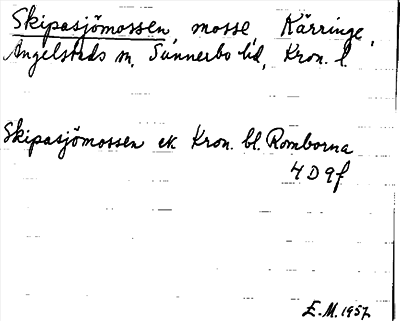 Skipasjömossen, mosse, Kärringe,
Angelstads sn, Sunnerbo hd, Kron. l.
Skipasjömossen ek Kron. bl. Romborna
4 D 9f
E.M. 1957